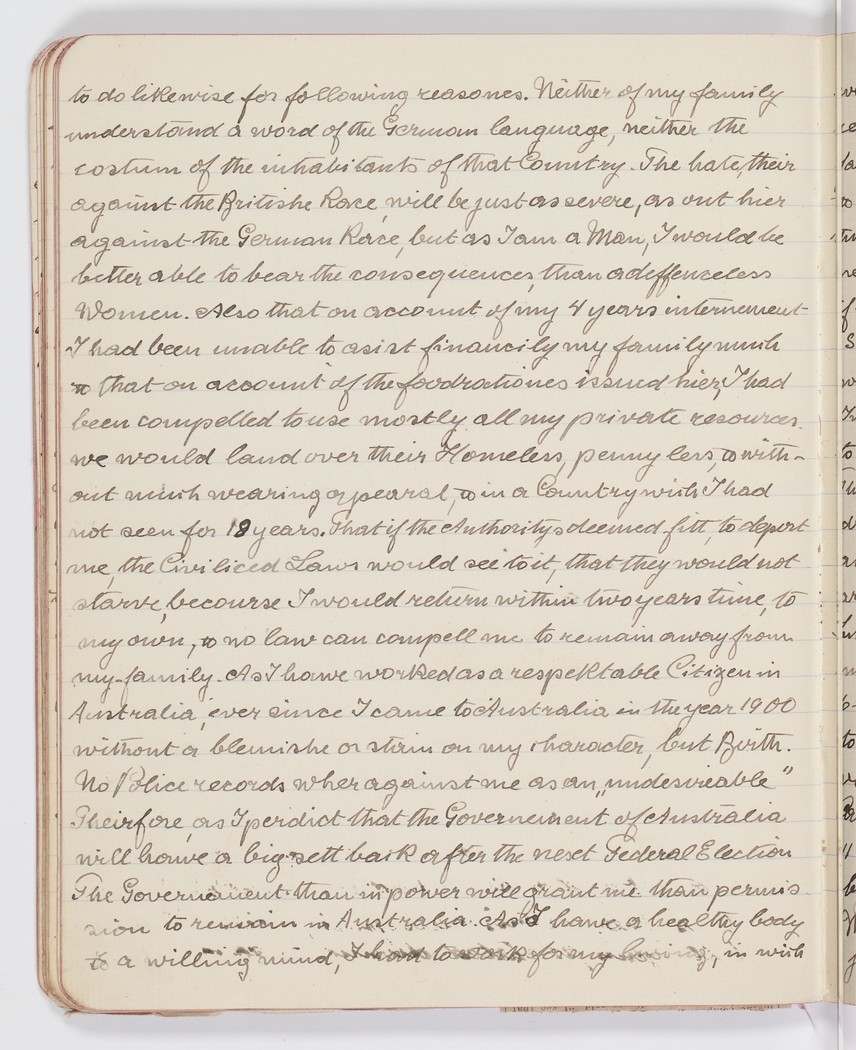 to do likewise for following reasones. Neither of my family
understand a word of the German language, neither the
costum of the inhabitants of that Country. The hate, their
against the Britishe Race, will be just as severe, as out hier
against the German Race, but as I am a Man, I would be
better able to bear the consequences, than a deffenceless
Women. Also that on account of my 4 years internement
I had been unable to asist financily my family much
& that on account of the foodrationes issued hier, I had
been compelled to use mostly all my private resources.
we would land over their Homeless, penny less, & with-
out much wearing appearal, & in a Country wish I had
not seen for 18 years. That if the Authoritys deemed fitt, to deport
me, the Civiliced Laws would see to it, that they would not
starve, becourse I would return within two years time, to
my own, & no law can compell me to remain away from
my family. As I hawe worked as a respektable Citizen in
Australia, ever since I came to Australia in the year 1900
without a blemishe or stain on my character, but Birth.
No Police records wher against me as an „undesireable"
Theirfore, as I perdict that the Governement of Australia
will hawe a big sett back after the next Federal Election
The Governement than in power will grant me than permis
sion to remain in Australia. As I hawe a healthy body
& a willing mind, I had to work for my living, in wish